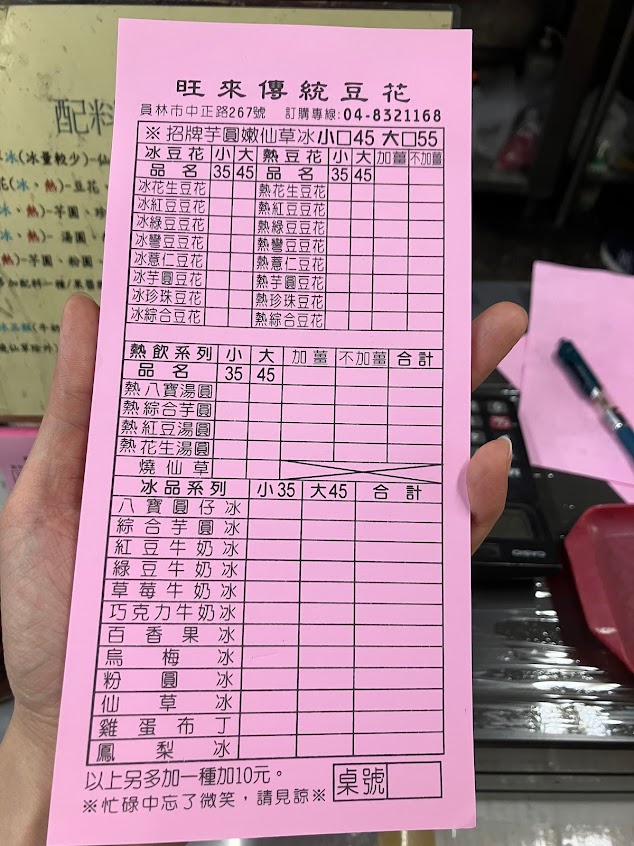 旺來傳統豆花
員林市中正路267號 訂購專線:04-8321168
※招牌芋圓嫩仙草冰小□45 大□55
冰豆花 小 大 熱豆花 小 大 加薑 不加薑
品名 35 45 品名 35 45
冰花生豆花 熱花生豆花
冰紅豆豆花 熱紅豆豆花
冰綠豆豆花 熱綠豆豆花
冰彎豆豆花 熱彎豆豆花
冰薏仁豆花 熱薏仁豆花
冰芋圓豆花 熱芋圓豆花
冰珍珠豆花 熱珍珠豆花
冰綜合豆花 熱綜合豆花
熱飲系列 小 大 加薑 不加薑 合計
品名 35 45
熱八寶湯圓
熱綜合芋圓
熱紅豆湯圓
熱花生湯圓
燒仙草
冰品系列 小35 大45 合計
八寶圓仔冰
綜合芋圓冰
紅豆牛奶冰
綠豆牛奶冰
草莓牛奶冰
巧克力牛奶冰
百香果冰
烏梅冰
粉圓冰
仙草冰
雞蛋布丁
鳳梨冰
以上另多加一種加10元。 桌號
※忙碌中忘了微笑,請見諒※
配料
冰(冰量較少)-仙
花(冰、熱)-豆花、
(冰、熱)-芋圓、珍
(冰、熱)- 湯圓、
熱)-芋圓、粉圓
加配料一種/果醬
CASIO